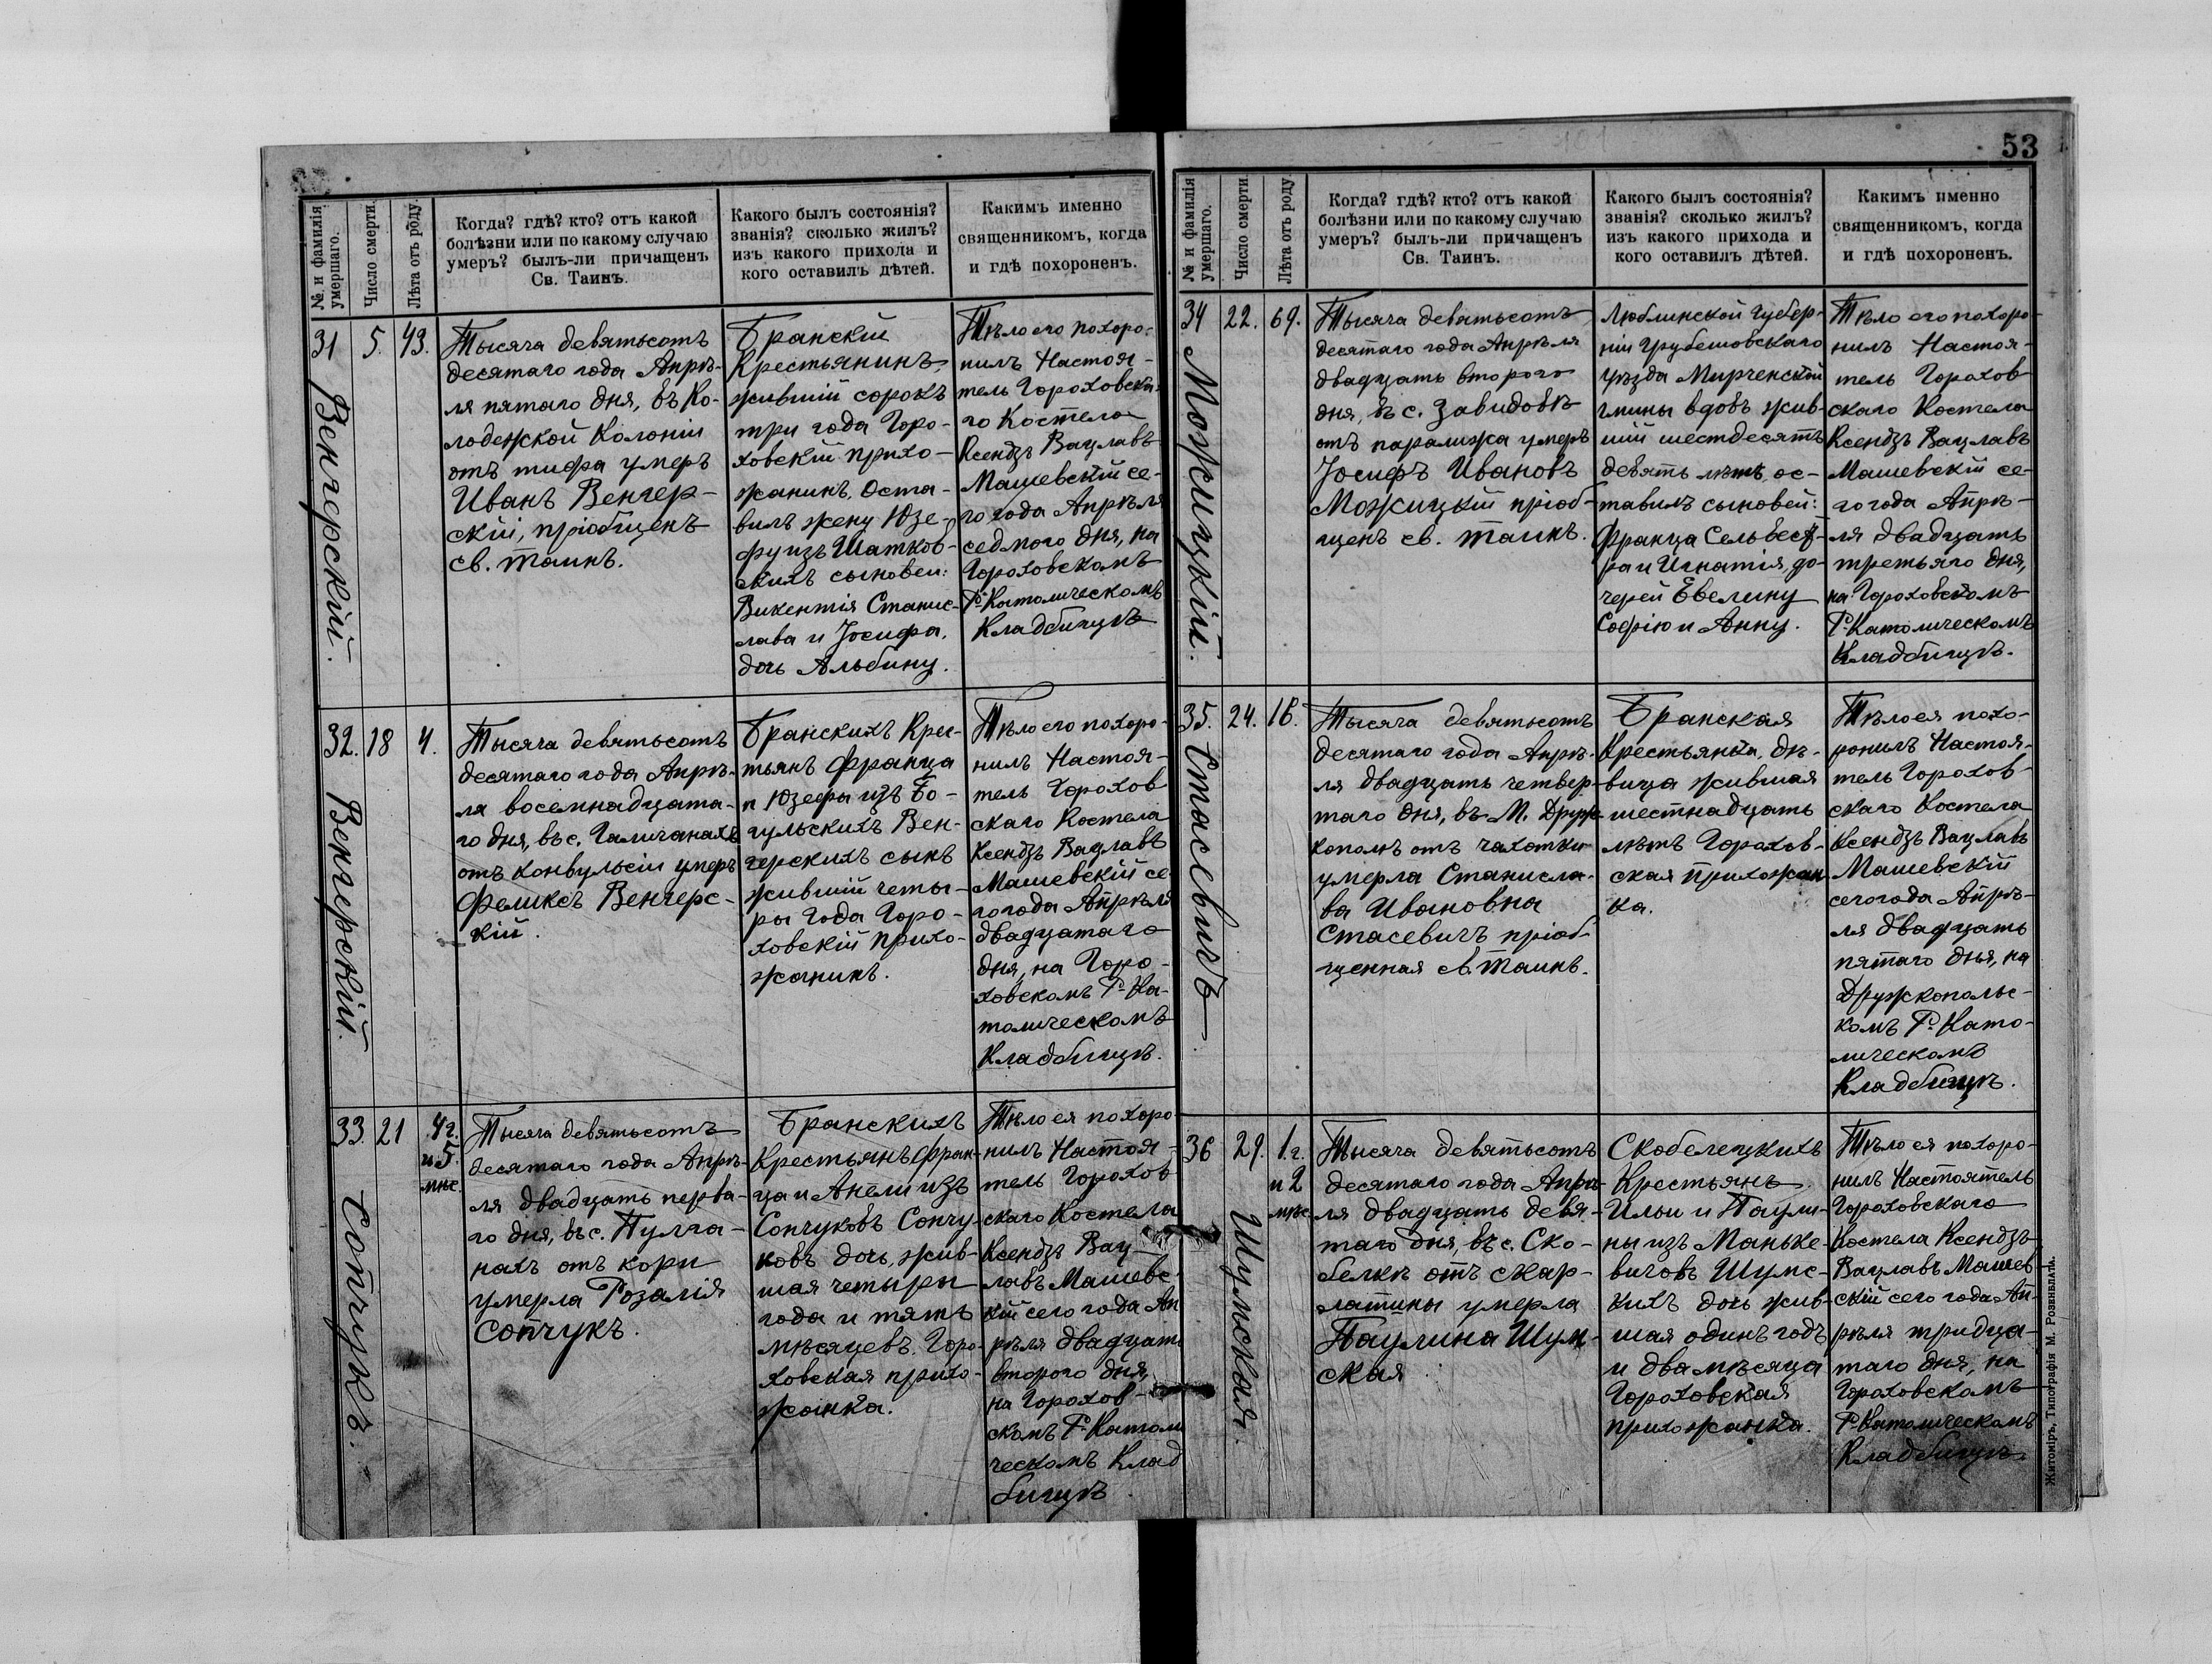 100
№. и фамилія
умершаго.
Число смерти.
Лѣта отъ роду.
Когда? гдѣ? кто? отъ какой
болѣзни или по какому случаю
умеръ? былъ-ли причащенъ
Св. Таинъ.
Какого былъ состоянія?
званія? сколько жилъ?
изъ какого прихода и
кого оставилъ дѣтей.
Какимъ именно
священникомъ, когда
и гдѣ похороненъ.
31
Венгерскій.
5.
43.
Тысяча девятьсотъ
десятаго года Апрѣ-
ля пятаго дня, въ Ко-
лодежской Колоніи
отъ тифа умеръ
Иванъ Венгер-
скій, пріобщенъ
св. таинъ.
Бранскій
Крестьянинъ,
жившій сорокъ
три года Горо-
ховскій прихо-
жанинъ. Оста-
вилъ жену Юзе-
фу изъ Шатков-
скихъ сыновей:
Викентія Станис-
лава и Іосифа,
дочь Альбину.
Тѣло его похоро-
нилъ Настоя-
тель Гороховска-
го Костела
Ксендзъ Вацлавъ
Машевскій се-
го года Апрѣля
седмого дня, на
Гороховскомъ
Р.-Католическомъ
Кладбищѣ
32.
Венгерскій.
18
4.
Тысяча девятьсотъ
десятаго года Апрѣ-
ля восемнадцата-
го дня, въ с. Галичанахъ
отъ конвульсіи умеръ
Феликсъ Венгерс-
кій.
Бранскихъ Крес-
тьянъ Франца
и Юзефы изъ Бо-
гульскихъ Вен-
герскихъ сынъ
жившій четы-
ры года Горо-
ховскій прихо-
жанинъ.
Тѣло его похоро-
нилъ Настоя-
тель Горохов
скаго Костела
Ксендзъ Вацлавъ
Машевскій се-
го года Апрѣля
двадцатаго
дня, на Горо-
ховскомъ Р-Ка-
толическомъ
Кладбищѣ.
33.
Сопчукъ.
21
4 г.
и 5
мѣс.
Тысяча девятьсотъ
десятаго года Апрѣ-
ля двадцать перва-
го дня, въ с. Пулга-
нахъ отъ кори
умерла Розалія
Сопчукъ.
Бранскихъ
Крестьянъ Фран-
ца и Анели изъ
Сопчуковъ Сопчу-
ковъ дочь, жив-
шая четыры
года и пять
мѣсяцевъ. Горо-
ховская прихо-
жанка.
Тѣло ея похоро
нилъ Настоя-
тель Горохов
скаго Костела
Ксендзъ Вац-
лавъ Машевс-
кій сего года Ап
рѣля двадцать
второго дня,
на Горохов-
скомъ Р-Католи
ческомъ Клад
бищѣ.
101
53
№ и фамилія
умершаго.
Число смерти.
Лѣта отъ роду.
Когда? гдѣ? кто? отъ какой
болѣзни или по какому случаю
умеръ? былъ-ли причащенъ
Св. Таинъ.
Какого былъ состоянія?
званія? сколько жилъ?
изъ какого прихода и
кого оставилъ дѣтей.
Какимъ именно
священникомъ, когда
и гдѣ похороненъ.
34
Можицкій.
22.
69.
Тысяча девятьсотъ
десятаго года Апрѣля
двадцать второго
дня, въ с. Завидовѣ
отъ паралижа умеръ
Іосифъ Ивановъ
Можицкій пріоб-
щенъ св. таинъ.
Люблинской Губер-
ніи Грубешовскаго
уѣзда Мирченской
гмины вдовъ жив-
шій шестдесятъ
девять лѣтъ, ос-
тавилъ сыновей:
Франца Сельвест-
ра и Игнатія, до-
черей Евелину
Софію и Анну.
Тѣло его похоро-
нилъ Настоя-
тель Горохов
скаго Костела
Ксендзъ Вацлавъ
Машевскій се-
го года Апрѣ-
ля двадцать
третьяго дня,
на Гороховскомъ
Р-Католическомъ
Кладбищѣ.
35.
Стасевичъ.
24.
16.
Тысяча девятьсотъ
десятаго года Апрѣ-
ля двадцать четвер-
таго дня, въ М. Друж-
кополѣ отъ чахотки
умерла Станисла-
ва Ивановна
Стасевичъ пріоб-
щенная св. таинъ.
Бранская
Крестьянка, дѣ-
вица жившая
шестнадцать
лѣтъ Горохов-
ская прихожан
ка.
Тѣло ея похо-
ронилъ Настоя-
тель Горохов-
скаго Костела
Ксендзъ Вацлавъ
Машевскій
сего года Апрѣ-
ля двадцать
пятаго дня, на
Дружкопольс-
комъ Р. Като-
лическомъ
Кладбищѣ.
36
Шумская.
29.
1 г.
и 2
мѣс.
Тысяча девятьсотъ
десятаго года Апрѣ-
ля двадцать девя-
таго дня, въ с. Ско-
белкѣ отъ скар-
латины умерла
Паулина Шум-
ская
Скобелецкихъ
Крестьянъ
Ильи и Паули-
ны изъ Маньке-
вичовъ Шумс-
кихъ дочь жив-
шая одинъ годъ
и два мѣсяца
Гороховская
прихожанка.
Тѣло ея похоро-
нилъ Настоятель
Гороховскаго
Костела Ксендзъ
Вацлавъ Машев-
скій сего года Ап-
рѣля тридца-
таго дня, на
Гороховскомъ
Р-Католическомъ
Кладбищѣ.
Житоміръ, Типографія М. Розенблатъ.